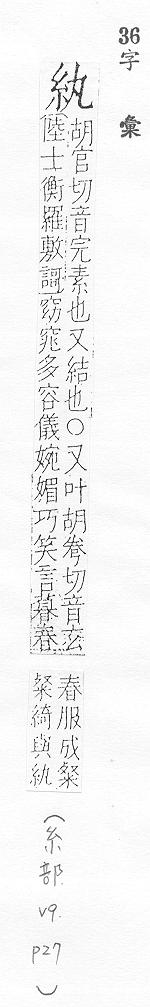 36字彙
紈
胡官切音完素也又結也○又叶胡眷切音玄
陸士衡羅敷謌窈窕多容儀婉媚巧笑言暮春
春服成粲
粲綺與紈
（糸部
v9.
p27
）